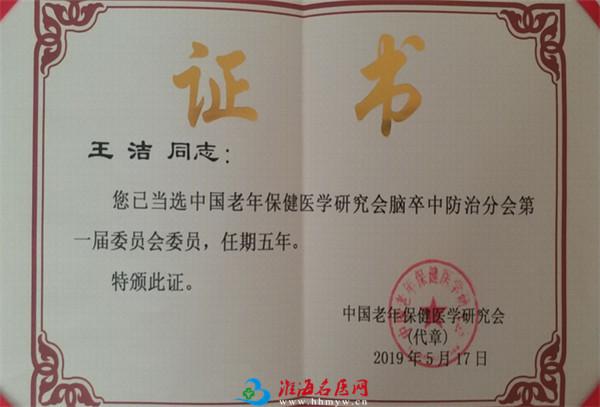 证书
王洁 同志：
您已当选中国老年保健医学研究会脑卒中防治分会第
一届委员会委员，任期五年。
特颁此证。
中国老年保健医学研究会
(代章)
2019年5月17日
淮海名医网
www.hhmyw.cn